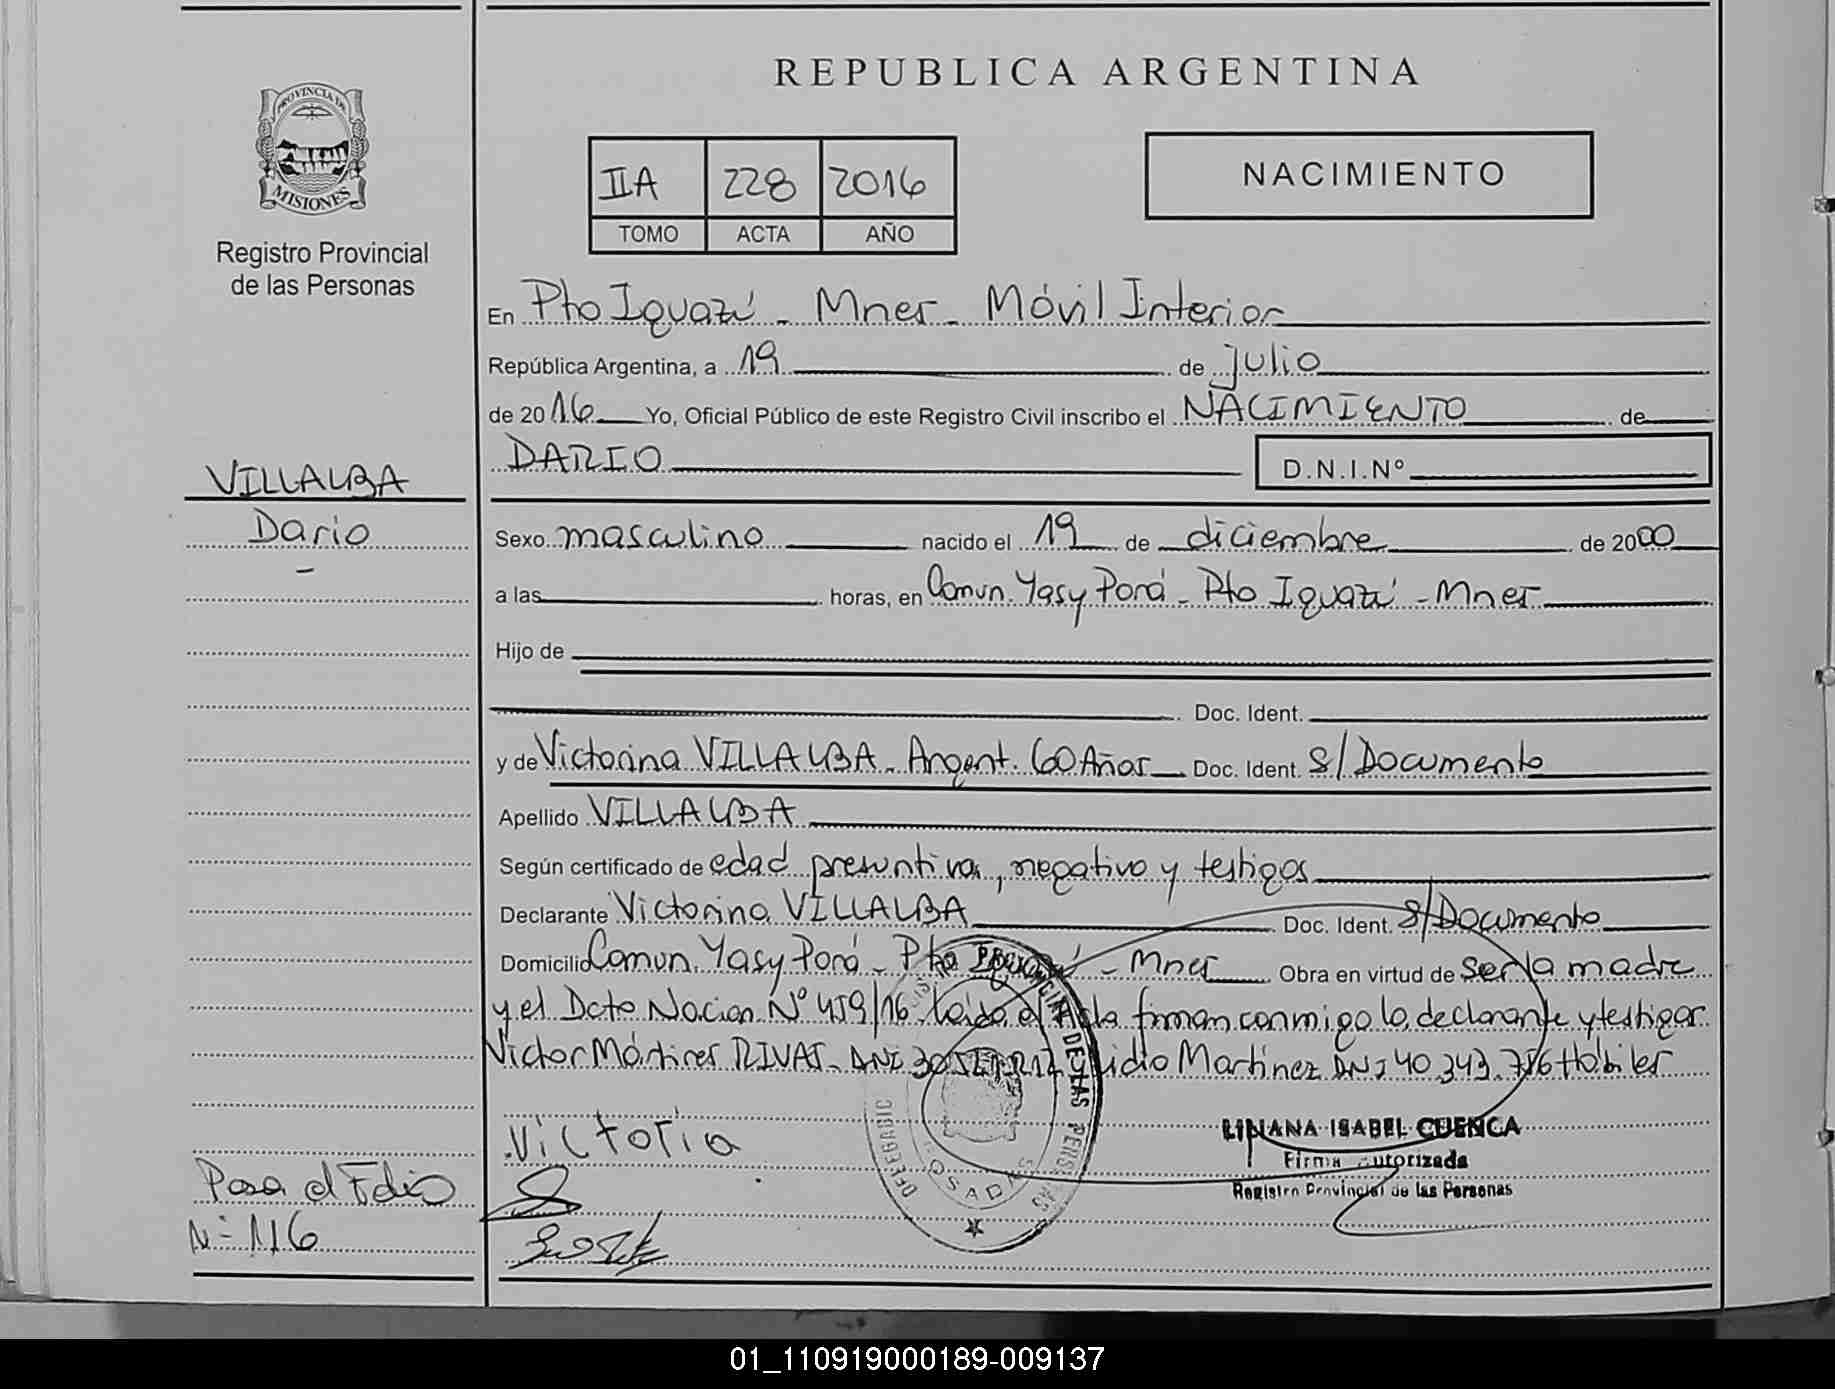 REPUBLICA ARGENTINA
PROVINCIA DE
MISIONES
Registro Provincial
de las Personas
IIA 228 2016
TOMO ACTA AÑO
NACIMIENTO
En Pto Iguazú - Mnes - Móvil Interior
República Argentina, a 19 de julio
de 2016 Yo, Oficial Público de este Registro Civil inscribo el NACIMIENTO de
DARIO D.N.I.Nº
VILLALBA
Dario
Sexo masculino nacido el 19 de diciembre de 2000
a las horas, en Comun. Yasy Porá - Pto Iguazú - Mnes
Hijo de
Doc. Ident.
y de Victorina VILLALBA - Argent. 60 Años Doc. Ident. s/Documento
Apellido VILLALBA
Según certificado de edad presuntiva, negativo y testigos
Declarante Victorina VILLALBA Doc. Ident. s/Documento
Domicilio Comun. Yasy Porá - Pto Iguazú - Mnes Obra en virtud de ser la madre
y el Dcto Nacion Nº 459/16. Leída el Acta firman conmigo la declarante y testigos
Victor Mártires RIVAS - DNI Lidio Martínez DNI 40.343.756 Hábiles
Victoria
LILIANA ISABEL CUENCA
Firma Autorizada
Registro Provincial de las Personas
PROVINCIAL DE LAS PERSONAS
POSADAS
Pasa al Folio
Nº 116
01_110919000189-009137